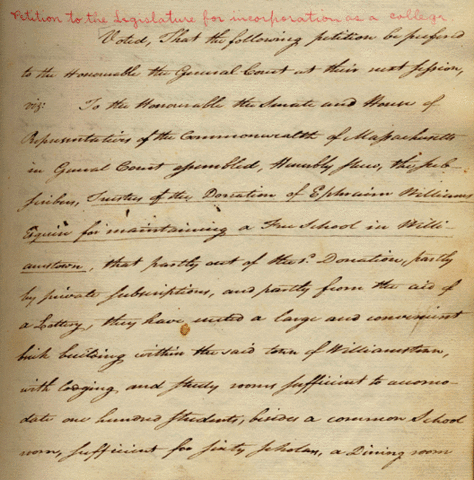 Petition to the Legislature for incorporation as a college
Voted, That the following petition be prefered
to the Honourable the General Court at their next session,
viz: To the Honourable the Senate and House of
Representatives of the Commonwealth of Massachusetts
in General Court assembled, Humbly shew, the sub-
scribers, Trustees of the Donation of Ephraim Williams
Esquire for maintaining a Free School in Willi-
amstown, that partly out of the sd. Donation, partly
by private subscriptions, and partly from the aid of
a Lottery, they have erected a large and convenient
brick building within the said town of Williamstown,
with lodging and study rooms sufficient to accomo-
date one hundred students, besides a common School
room, sufficient for sixty scholars, a Dining room